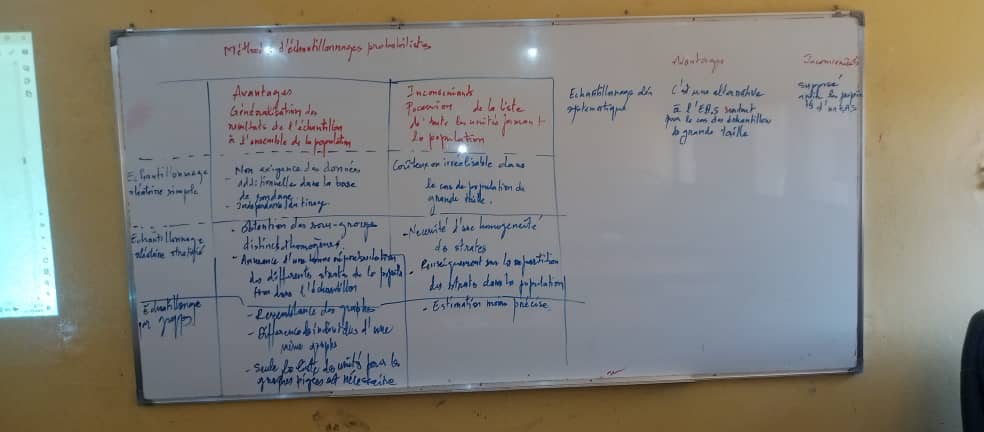 Méthodes d'échantillonnages probabilistes
Avantages
Généralisation des
résultats de l'échantillon
à l'ensemble de la population
Inconvénients
Possession de la liste
de toute les unités formant
la population
Echantillonnage
aléatoire simple
- Non exigence des données
additionnelle dans la base
de sondage
- Indépendance du tirage.
Coûteux ou irréalisable dans
le cas de population de
grande taille.
Echantillonnage
aléatoire stratifié
- Obtention des sous-groupe
distincts homogènes.
- Assurance d'une bonne représentation
des différentes strates de la popula
tion dans l'échantillon
- Nécessité d'une homogénéité
de strates
- Renseignement sur la répartition
des strates dans la population
Echantillonage
par grappes
- Ressemblance des graphes
- Différence de individus d'une
même graphe
- Seule la liste des unités pour les
grappes pigées est nécessaire
- Estimation moins précise.
Echantillonnage
systématique
Avantages
C'est une alternative
à l'E.A.S surtout
pour le cas des échantillon
de grande taille
Inconvénients
suppose